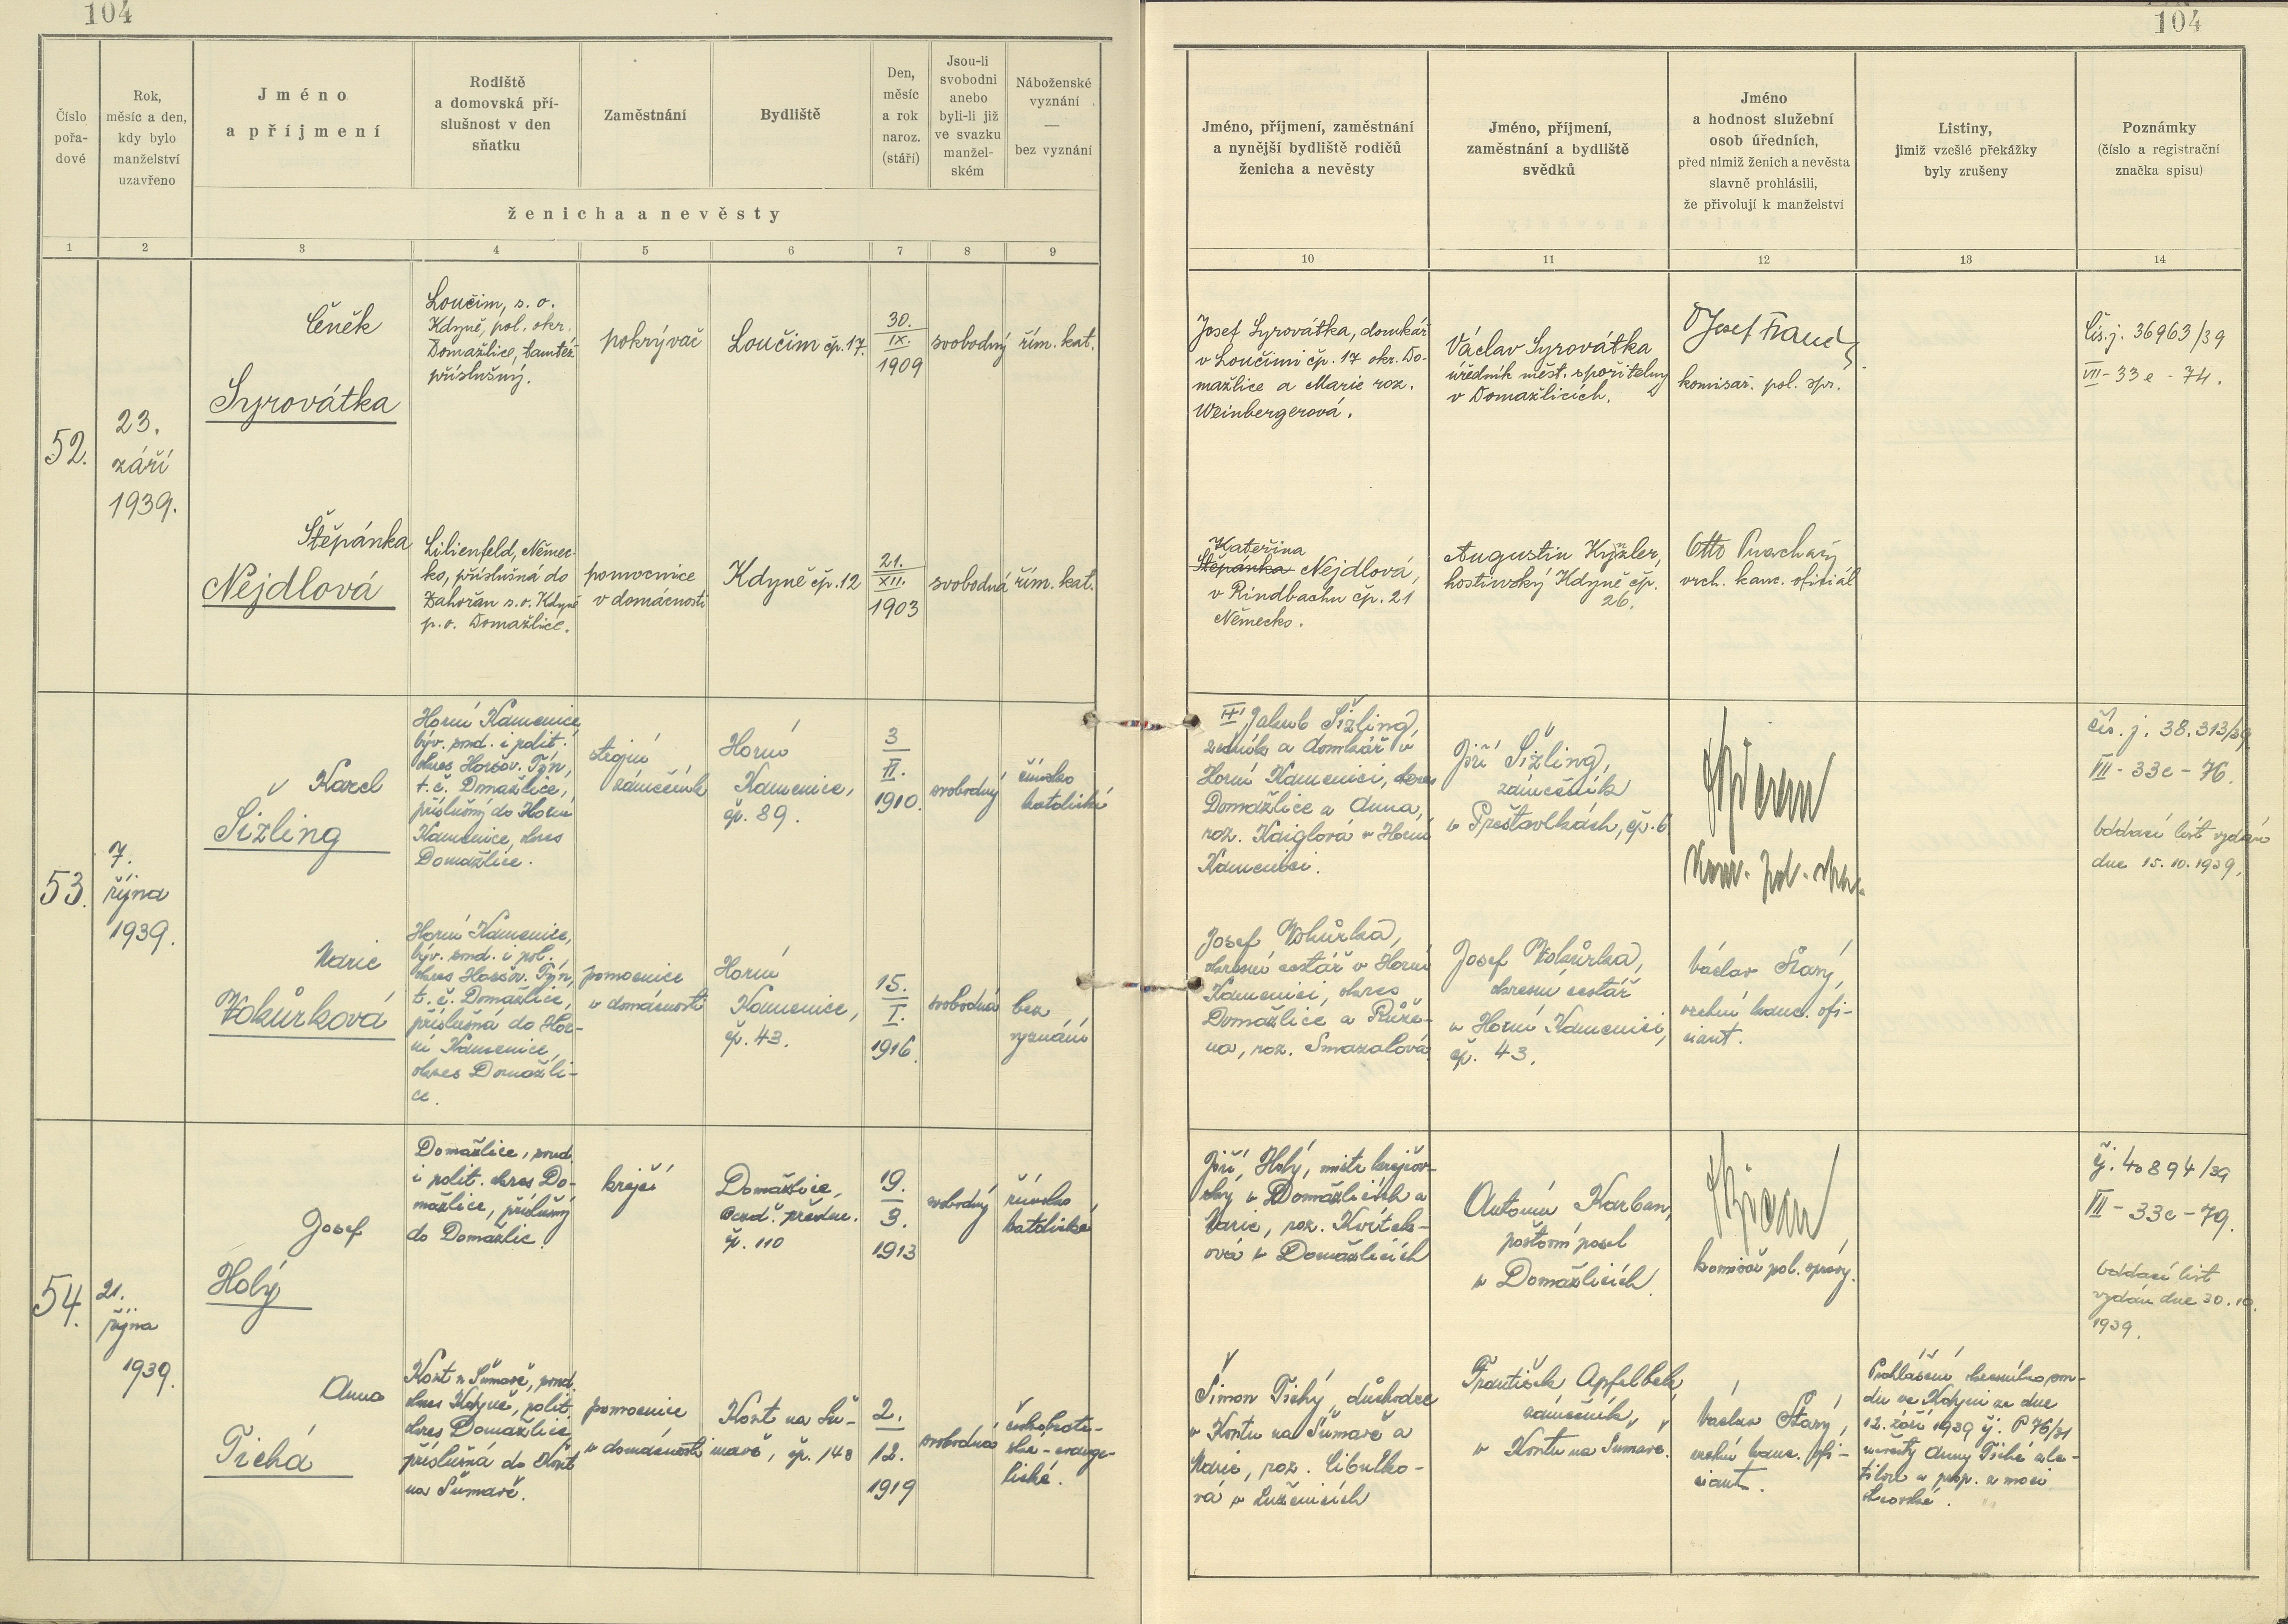 104
104
Číslo
pořa-
dové
Rok,
měsíc a den,
kdy bylo
manželství
uzavřeno
Jméno
a příjmení
Rodiště
a domovská pří-
slušnost v den
sňatku
Zaměstnání
Bydliště
Den,
měsíc
a rok
naroz.
(stáří)
Jsou-li
svobodni
anebo
byli-li již
ve svazku
manžel-
ském
Náboženské
vyznání
—
bez vyznání
ženicha a nevěsty
Jméno, příjmení, zaměstnání
a nynější bydliště rodičů
ženicha a nevěsty
Jméno, příjmení,
zaměstnání a bydliště
svědků
Jméno
a hodnost služební
osob úředních,
před nimiž ženich a nevěsta
slavně prohlásili,
že přivolují k manželství
Listiny,
jimiž vzešlé překážky
byly zrušeny
Poznámky
(číslo a registrační
značka spisu)
1 2 3 4 5 6 7 8 9 10 11 12 13 14
52.
23.
září
1939.
Čeněk
Syrovátka
Loučim, s. o.
Kdyně, pol. okr.
Domažlice, tamtéž
příslušný.
pokrývač
Loučim čp. 17.
30.
IX.
1909
svobodný
řím. kat.
Josef Syrovátka, domkář
v Loučimi čp. 17 okr. Do-
mažlice a Marie roz.
Weinbergerová.
Václav Syrovátka
úředník měst. spořitelny
v Domažlicích.
komisař. pol. spr.
Čís. j. 36963/39
VII - 33 e - 74.
Štěpánka
Nejdlová
Lilienfeld, Němec-
ko, příslušná do
Zahořan s. o. Kdyně
p. o. Domažlice.
pomocnice
v domácnosti
Kdyně čp. 12
21.
XII.
1903
svobodná
řím. kat.
Kateřina
Štěpánka Nejdlová,
v Rindbachu čp. 21
Německo.
Augustin
hostinský Kdyně čp.
26.
Otto
vrch. kanc. oficiál
53.
7.
října
1939.
Karel
Šizling
Horní Kamenice,
býv. soud. i polit.
okres Horšov. Týn,
t. č. Domažlice,
příslušný do Horní
Kamenice, okres
Domažlice.
strojní
zámečník
Horní
Kamenice,
čp. 89.
3
II.
1910.
svobodný
římsko
katolické
Jakub Šizling,
zedník a domkář v
Horní Kamenici, okres
Domažlice a Anna,
roz. Kaiglová v Horní
Kamenici.
Jiří Šizling,
zámečník
v Přeštavlkách, čp. 6
Kom. pol. spr.
čís. j. 38.313/39
VII - 33e - 76.
Oddací list vydán
dne 15.10.1939.
Marie
Vokůrková
Horní Kamenice,
býv. soud. i pol.
okres Horšov. Týn,
t. č. Domažlice,
příslušná do Hor-
ní Kamenice,
okres Domažli-
ce.
pomocnice
v domácnosti
Horní
Kamenice,
čp. 43.
15.
I.
1916.
svobodná
bez
vyznání
Josef Vokůrka,
okresní cestář v Horní
Kamenici, okres
Domažlice a Růže-
na, roz. Smazalová
Josef Vokůrka,
okresní cestář
v Horní Kamenici,
čp. 43.
Václav Starý,
vrchní kanc. ofi-
ciant.
54.
21.
října
1939.
Josef
Holý
Domažlice, soud.
i polit. okres Do-
mažlice, příslušný
do Domažlic.
krejčí
Domažlice,
předm.
čp. 110
19.
3.
1913
svobodný
římsko
katolické
Jiří Holý, mistr krejčov-
ský v Domažlicích a
Marie, roz. Květoň-
ová v Domažlicích
Antonín Karban,
poštovní posel
v Domažlicích.
komisař pol. správy.
čj. 40894/39
VII - 33e - 79.
Oddací list
vydán dne 30.10.
1939.
Anna
Tichá
Kout n Šumavě, soud.
okres Kdyně, polit.
okres Domažlice,
příslušná do Kout
na Šumavě.
pomocnice
v domácnosti
Kout na Šu-
mavě, čp. 148
2.
12.
1919
svobodná
českobratr-
ské - evange-
lické.
Šimon Tichý, důchodce
v Koutu na Šumavě a
Marie, roz. Cibulko-
vá v Luženicích
František Apfelbek,
zámečník,
v Koutu na Šumavě.
Václav Starý,
vrchní kanc. ofi-
ciant.
Prohlášení okresního sou-
du ve Kdyni ze dne
12. září 1939 čj. P 76/31
nevěsty Anny Tiché zle-
tilou a prop. z moci
otcovské.